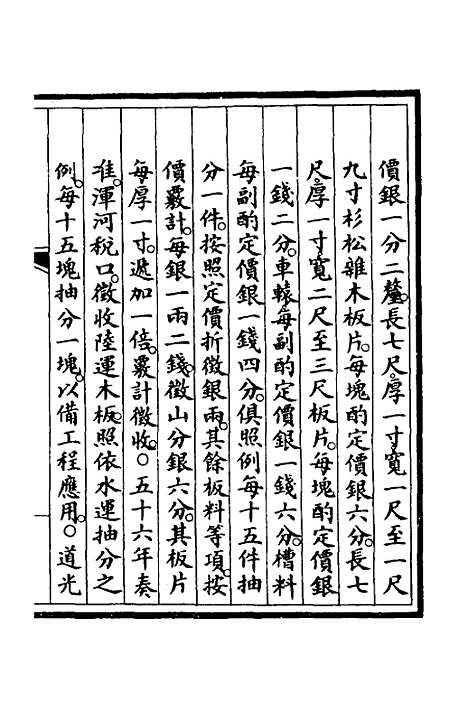 價銀一分二釐。長七尺。厚一寸。寬一尺至一尺
九寸杉松雜木板片。每塊酌定價銀六分。長七
尺。厚一寸寬二尺至三尺板片。每塊酌定價銀
一錢二分。車轅每副酌定價銀一錢六分。槽料
每副酌定價銀一錢四分。俱照例每十五件抽
分一件。按照定價折徵銀兩。其餘板料等項。按
價覈計。每銀一兩二錢。徵山分銀六分。其板片
每厚一寸。遞加一倍。覈計徵收。○五十六年奏
准。渾河稅口。徵收陸運木板。照依水運抽分之
例。每十五塊抽分一塊。以備工程應用。○道光